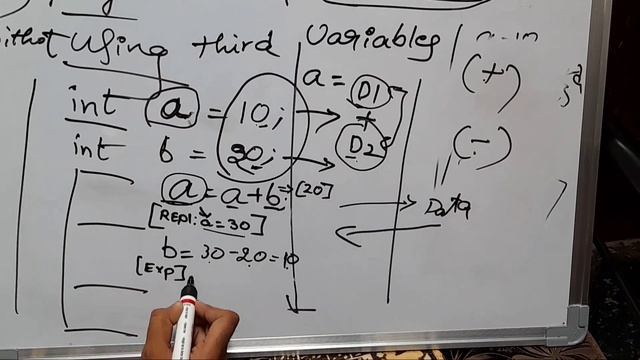 without using third variables
int a = 10;
int b = 20;
a = a+b; [20]
[Repl: a=30]
b = 30-20=10
[Exp]
a = D1
+
D2
(+)
(-)
Data